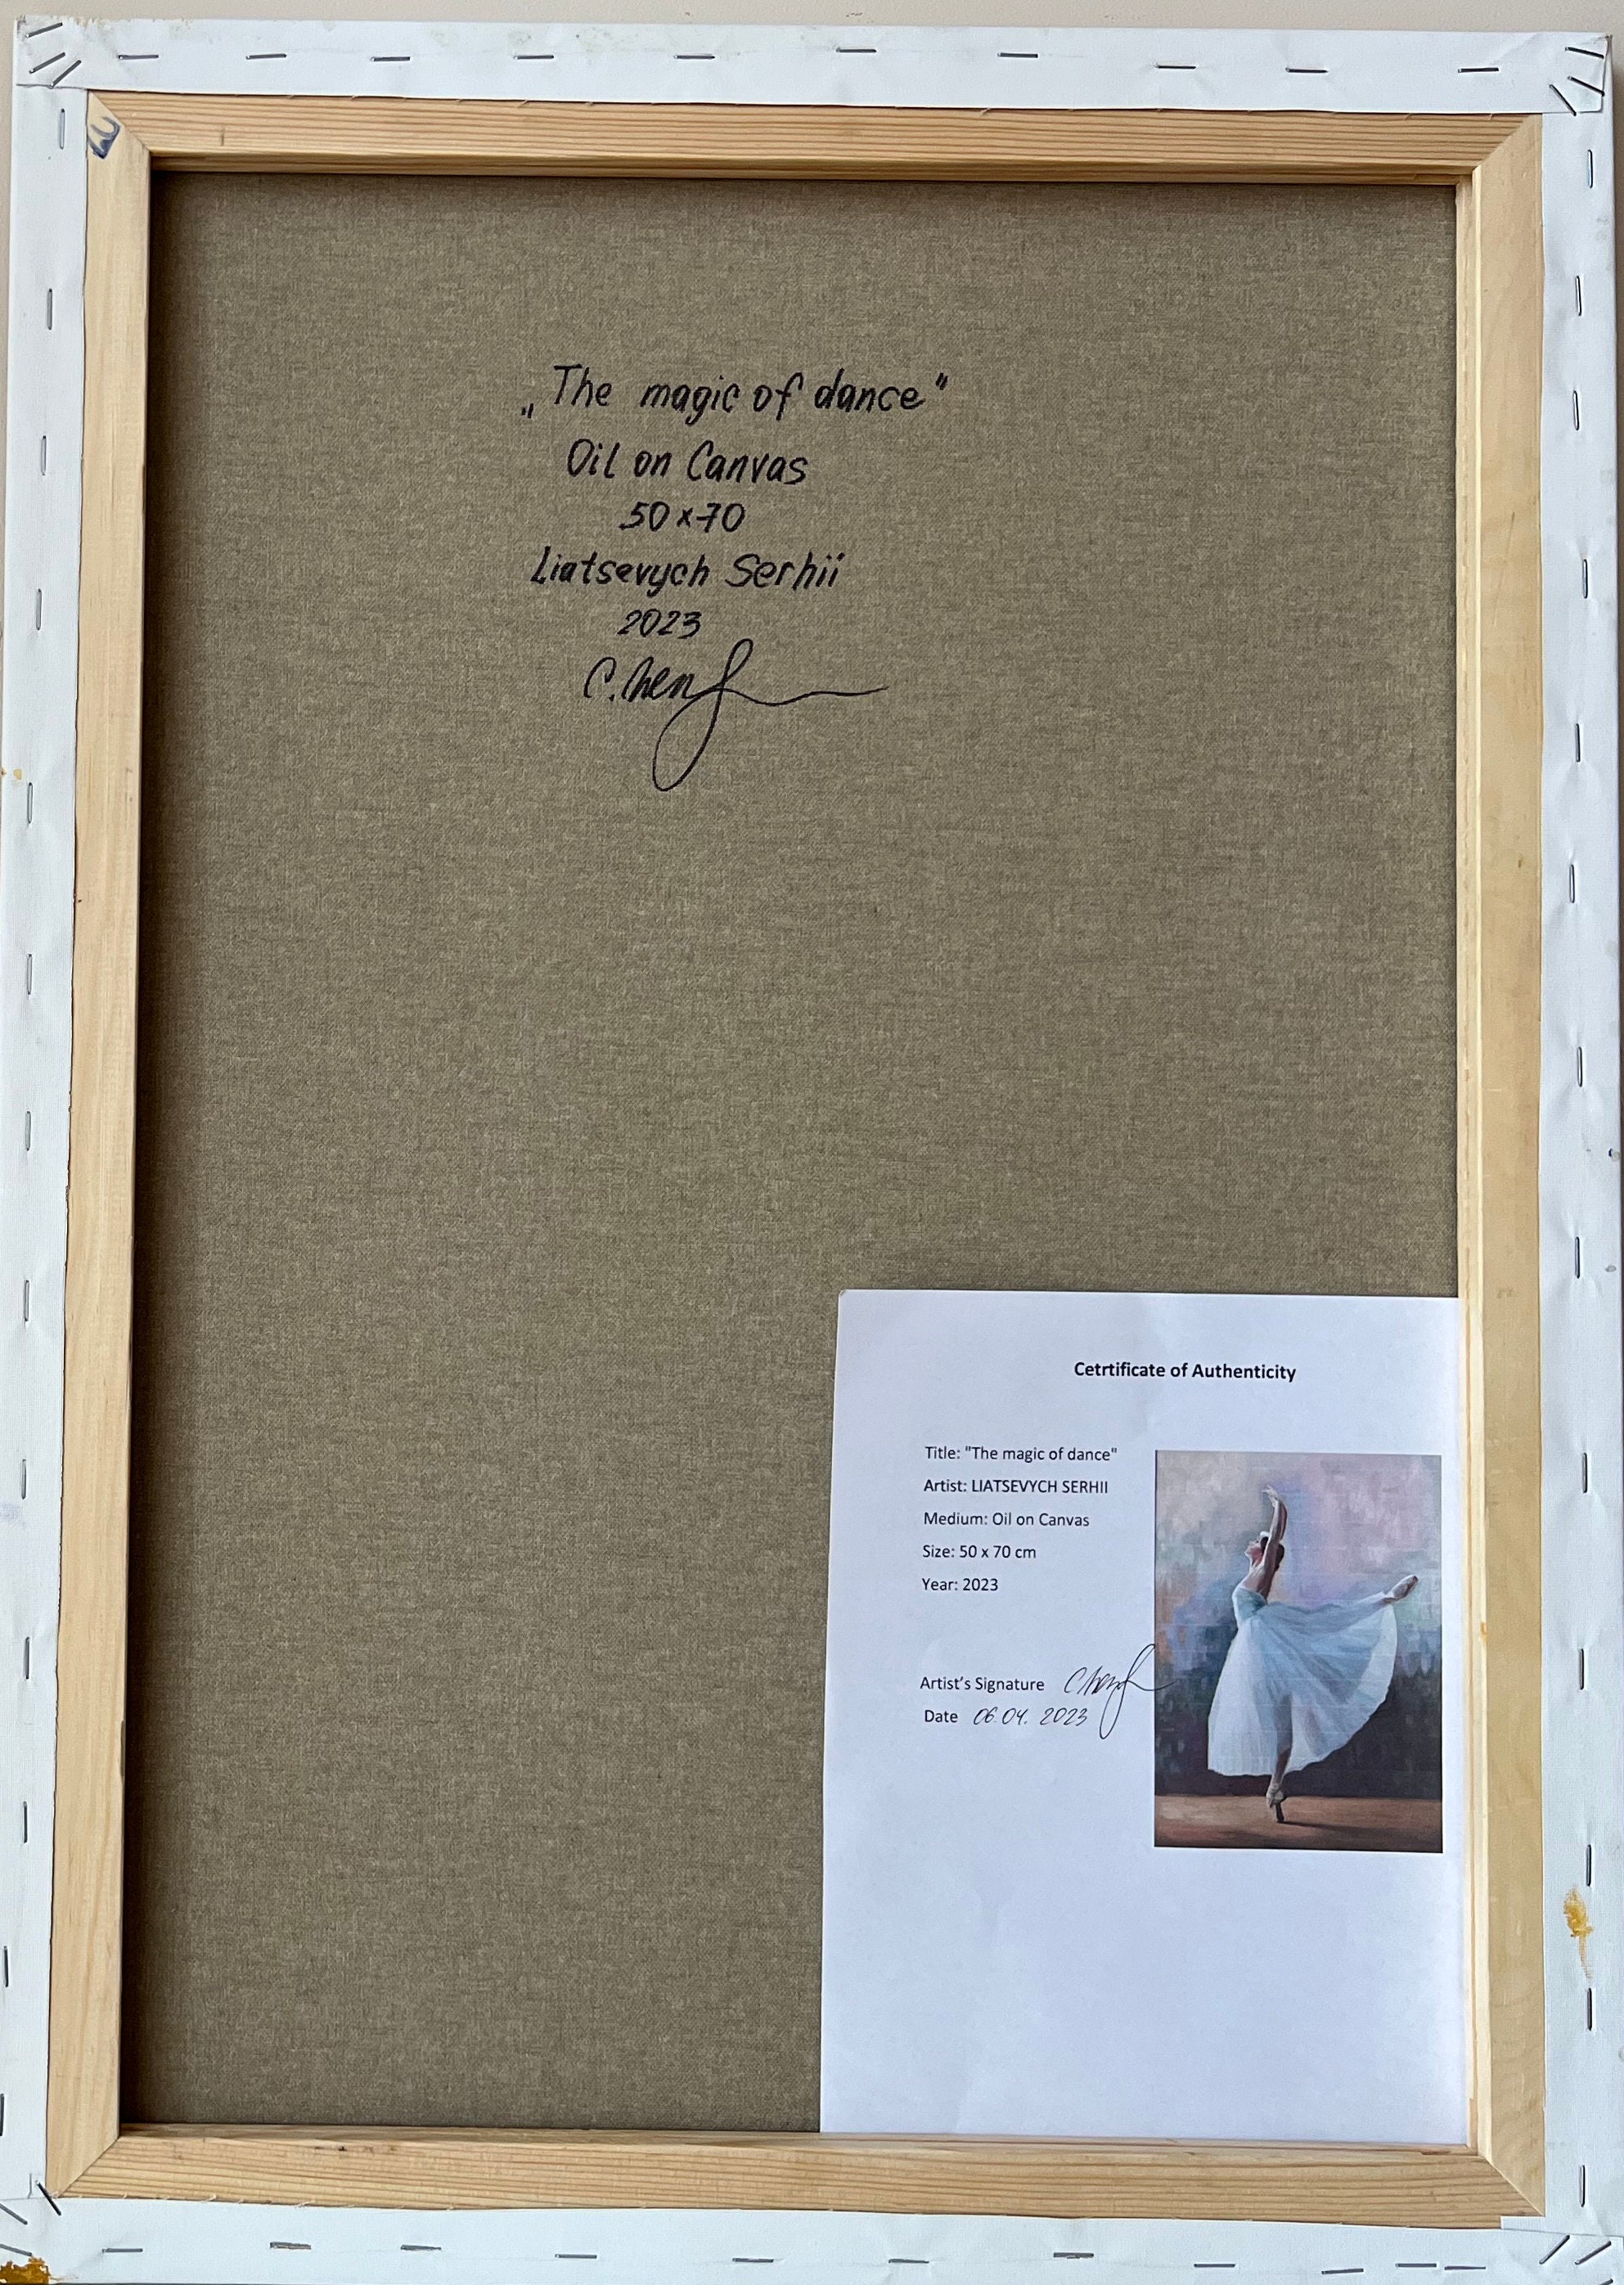 „The magic of dance"
Oil on Canvas
50x70
Liatsevych Serhii
2023
Cetrtificate of Authenticity
Title: "The magic of dance"
Artist: LIATSEVYCH SERHII
Medium: Oil on Canvas
Size: 50 x 70 cm
Year: 2023
Artist's Signature
Date 06.04. 2023